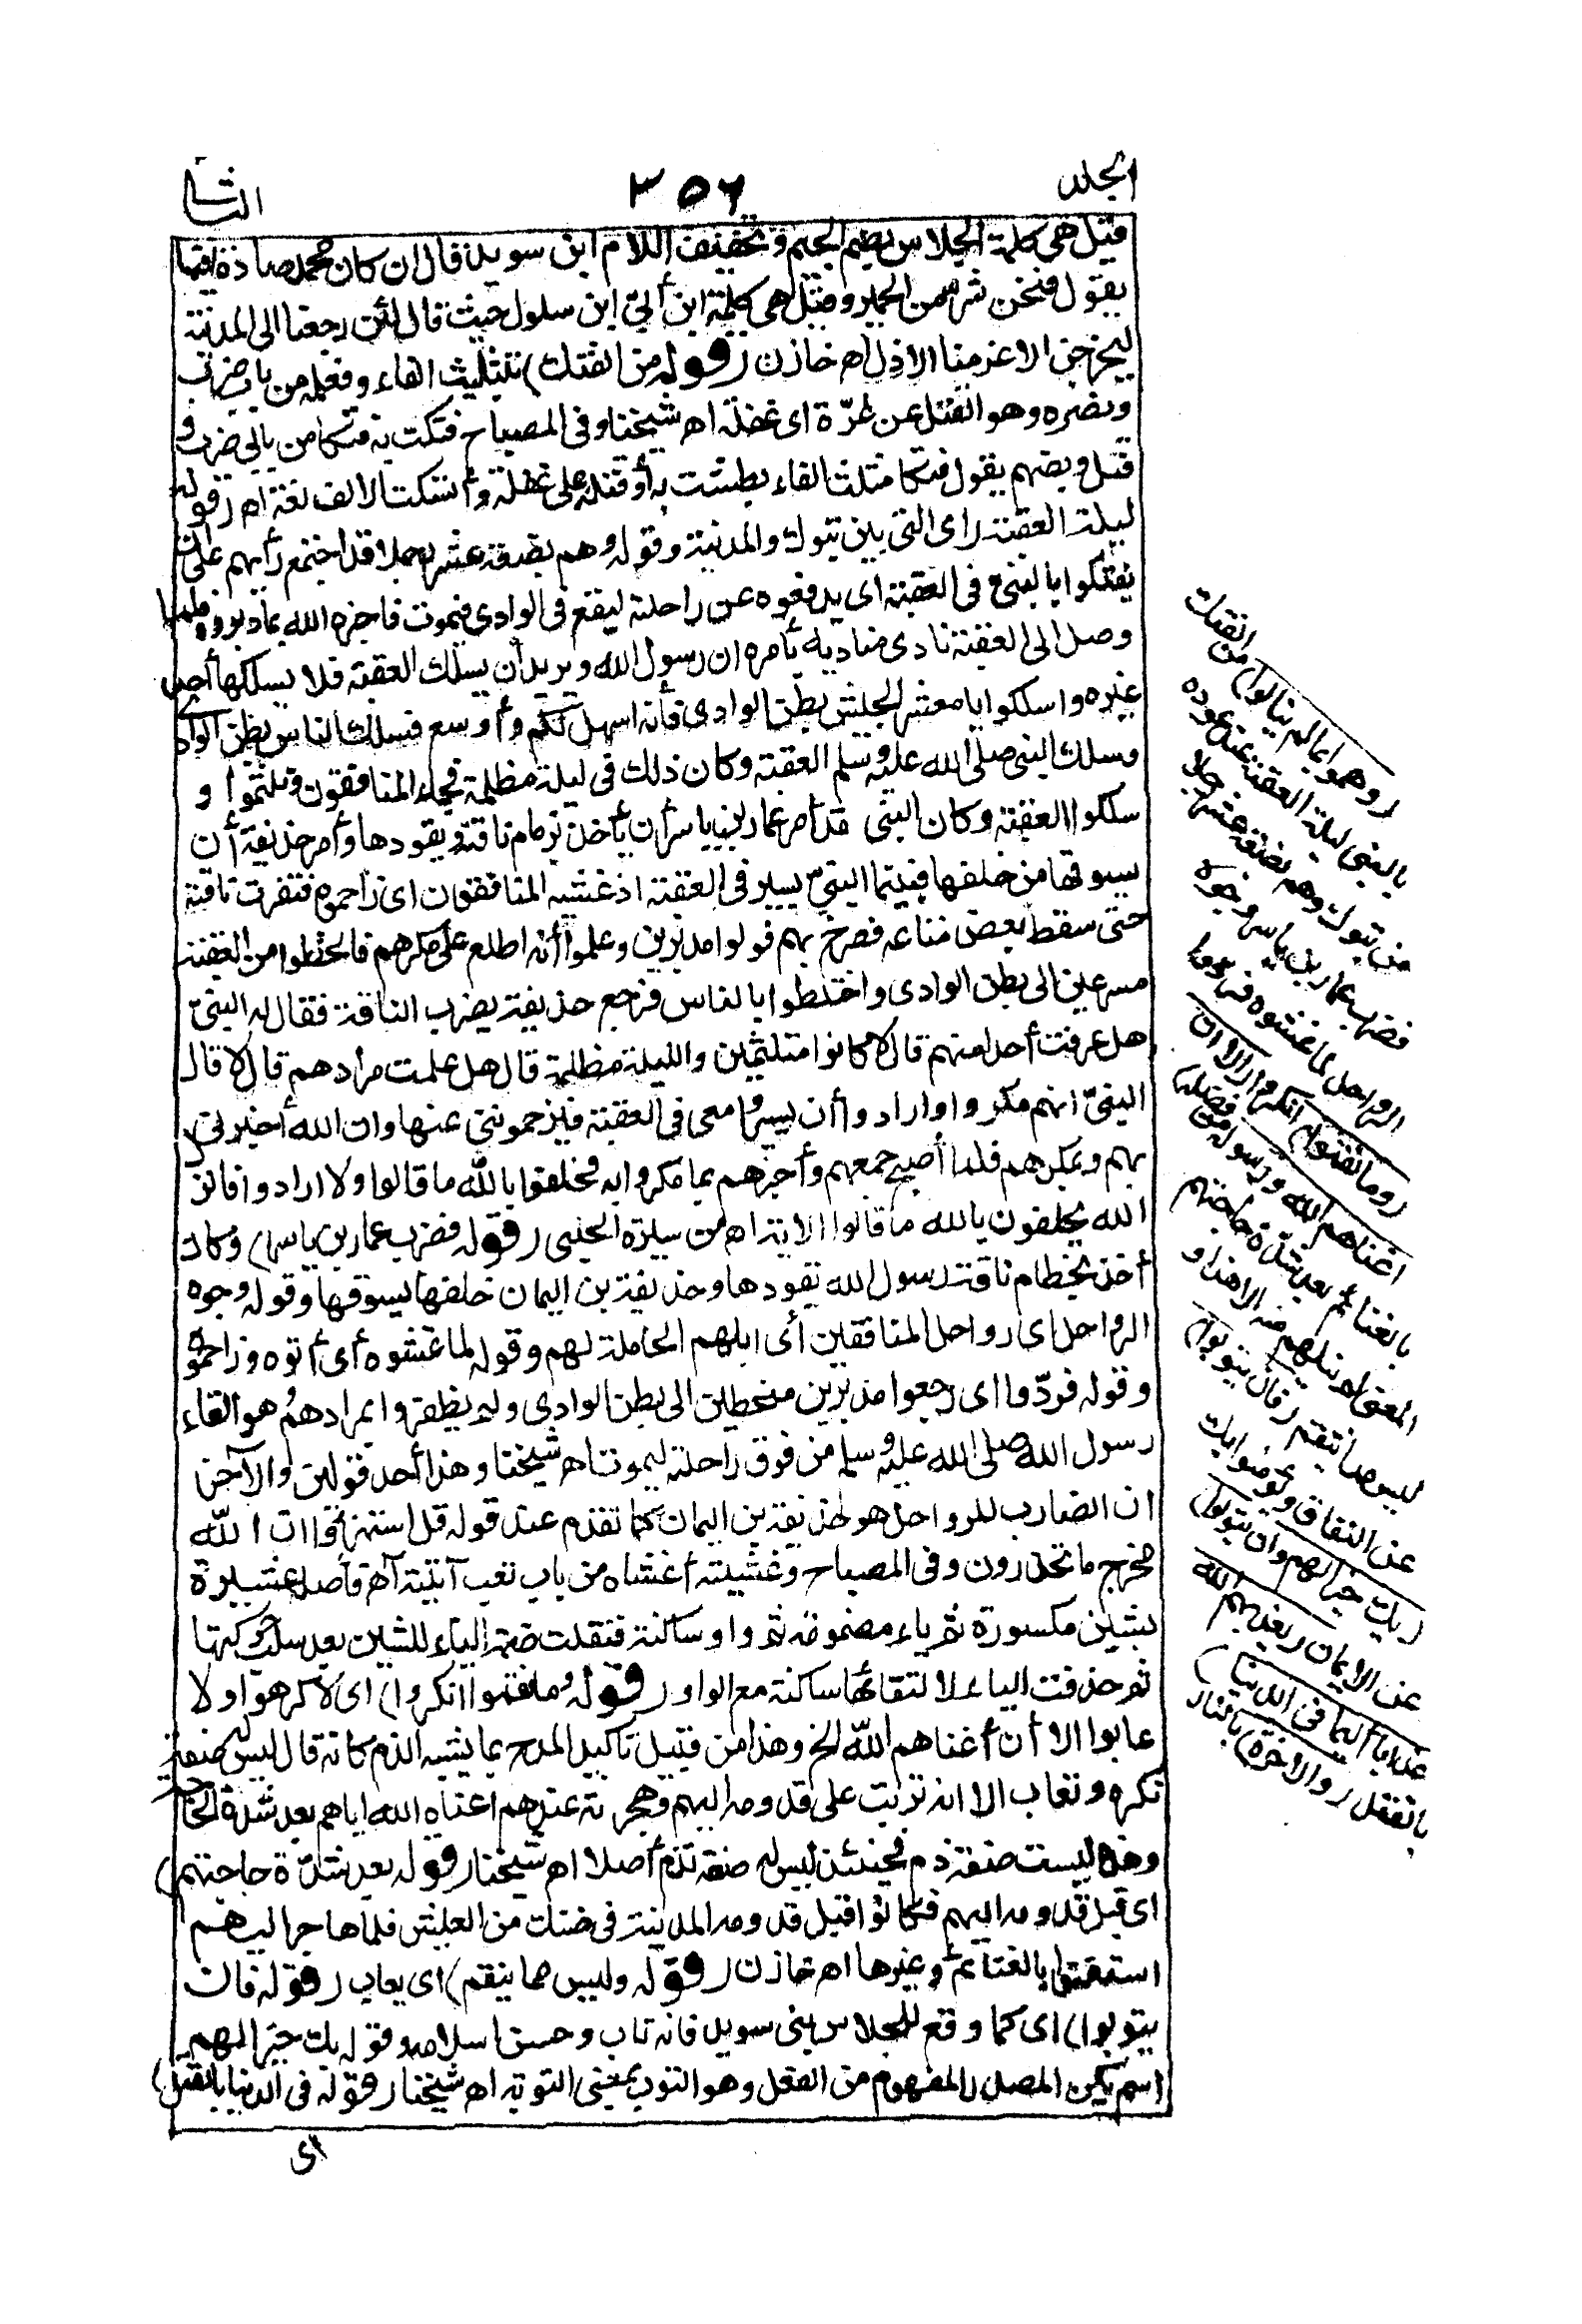 المجلد
٣٥٦
الثانى
قيل هى كلمة الجلاس بضم الجيم وتخفيف اللام ابن سويد قال ان كان محمد صادقا فيما
يقول فنحن شر من الحمير وقيل هى كلمة ابن أبىّ ابن سلول حيث قال لئن رجعنا الى المدينة
ليخرجن الاعز منها الاذل اه خازن (قوله من الفتك) بتثليث الفاء وفعله من باب ضرب
ونصره وهو القتل عن غرّة اى غفلة اه شيخنا وفى المصباح فتكت به فتكا من بابى ضرب و
قتل وبعضهم يقول فتكا مثلث الفاء بطشت به أو قتلته على غفلة وأفتكت بالالف لغة اه (قوله
ليلة العقبة) اى التى بين تبوك والمدينة وقوله وهم بضعة عشر رجلا قد اجتمع رأيهم على أن
يفتكوا بالنبى فى العقبة اى يدفعوه عن راحلته ليقع فى الوادى فيموت فاخبره الله بما دبروه فلما
وصل الى العقبة نادى مناديه بأمره ان رسول الله يريد أن يسلك العقبة فلا يسلكها أحد
غيره واسلكوا يا معشر الجيش بطن الوادى فأنه اسهل لكم وأوسع فسلك الناس بطن الوادى
وسلك النبى صلى الله عليه وسلم العقبة وكان ذلك فى ليلة مظلمة فجاء المنافقون وتلثموا و
سلكوا العقبة وكان النبى قد أمر عمار بن ياسر أن يأخذ بزمام ناقته ويقودها وأمر حذيفة أن
يسوقها من خلفها فبينما النبىّ يسير فى العقبة اذ غشيه المنافقون اى زاحموه فنفرت ناقته
حتى سقط بعض متاعه فصرخ بهم فولوا مدبرين وعلموا أنه اطلع على مكرهم فانحطوا من العقبة
مسرعين الى بطن الوادى واختلطوا بالناس فرجع حذيفة يضرب الناقة فقال له النبىّ
هل عرفت أحدا منهم قال لا كانوا متلثمين والليلة مظلمة قال هل علمت مرادهم قال لا قال
النبىّ انهم مكروا وارادوا أن يسيروا معى فى العقبة فيزحموننى عنها وان الله أخبرنى
بهم وبمكرهم فلما أصبح جمعهم وأخبرهم بما مكروا به فحلفوا بالله ما قالوا ولا ارادوا فانزل
الله يحلفون بالله ما قالوا الاية اه من سيرة الحلبى (قوله فضرب عمار بن ياسر) وكان
أخذ بخطام ناقة رسول الله يقودها وحذيفة بن اليمان خلفها يسوقها وقوله وجوه
الرواحل اى رواحل المنافقين أى ابلهم الحاملة لهم وقوله لما غشوه أى أتوه وزاحموه
وقوله فردّوا اى رجعوا مدبرين منحطين الى بطن الوادى ولم يظفروا بمرادهم هو القاء
رسول الله صلى الله عليه وسلم من فوق راحلته ليموت اه شيخنا وهذا أحد قولين والآخر
ان الضارب للرواحل هو حذيفة بن اليمان كما تقدم عند قوله قل استهزئوا ان الله
مخرج ما تحذرون وفى المصباح وغشيته أغشاه من باب تعب آتيته اه فأصل غشوه
بشين مكسورة ثم ياء مضمومة ثم واو ساكنة فنقلت ضمة الياء للشين بعد سلب حركتها
ثم حذفت الياء لالتقائها ساكنة مع الواو (قوله وما نقموا انكروا) اى لا كرهوا ولا
عابوا الا أن أغناهم الله الخ وهذا من قبيل تأكيد المدح بما يشبه الذم كانه قال ليس له صفة
تكره وتعاب الا انه ترتب على قدومه اليهم وهجرته عندهم اغناء الله اياهم بعد شدة الحاجة
وهذه ليست صفة ذم فحينئذ ليس له صفة تذم أصلا اه شيخنا (قوله بعد شدّة حاجتهم)
اى قبل قدومه اليهم فكانوا قبل قدومه المدينة فى ضنك من العيش فلما هاجر اليهم
استغنوا بالغنائم وغيرها اه خازن (قوله وليس مما ينقم) اى يعاب (قوله فان
يتوبوا) اى كما وقع للجلاس بن سويد فانه تاب وحسن اسلامه وقوله يك خيرا لهم
اسم يكن المصدر المفهوم من الفعل وهو التوب بمعنى التوبة اه شيخنا (قوله فى الدنيا بالقتل)
اى
(وهموا بما لم ينالوا) من الفتك
بالنبى ليلة العقبة عند عوده
من تبوك وهم بضعة عشر رجلا
فضرب عمار بن ياسر وجوه
الرواحل لما غشوه فردوا
(وما نقموا) انكروا (الا ان
اغناهم الله ورسوله من فضله)
بالغنائم بعد شدة حاجتهم
المعنى لم ينلهم منه الا هذا و
ليس مما ينقم (فان يتوبوا)
عن النفاق ويؤمنوا بك
(يك خيرا لهم وان يتولوا)
عن الايمان (يعذبهم الله
عذابا أليما فى الدنيا)
بالقتل (والاخرة) بالنار